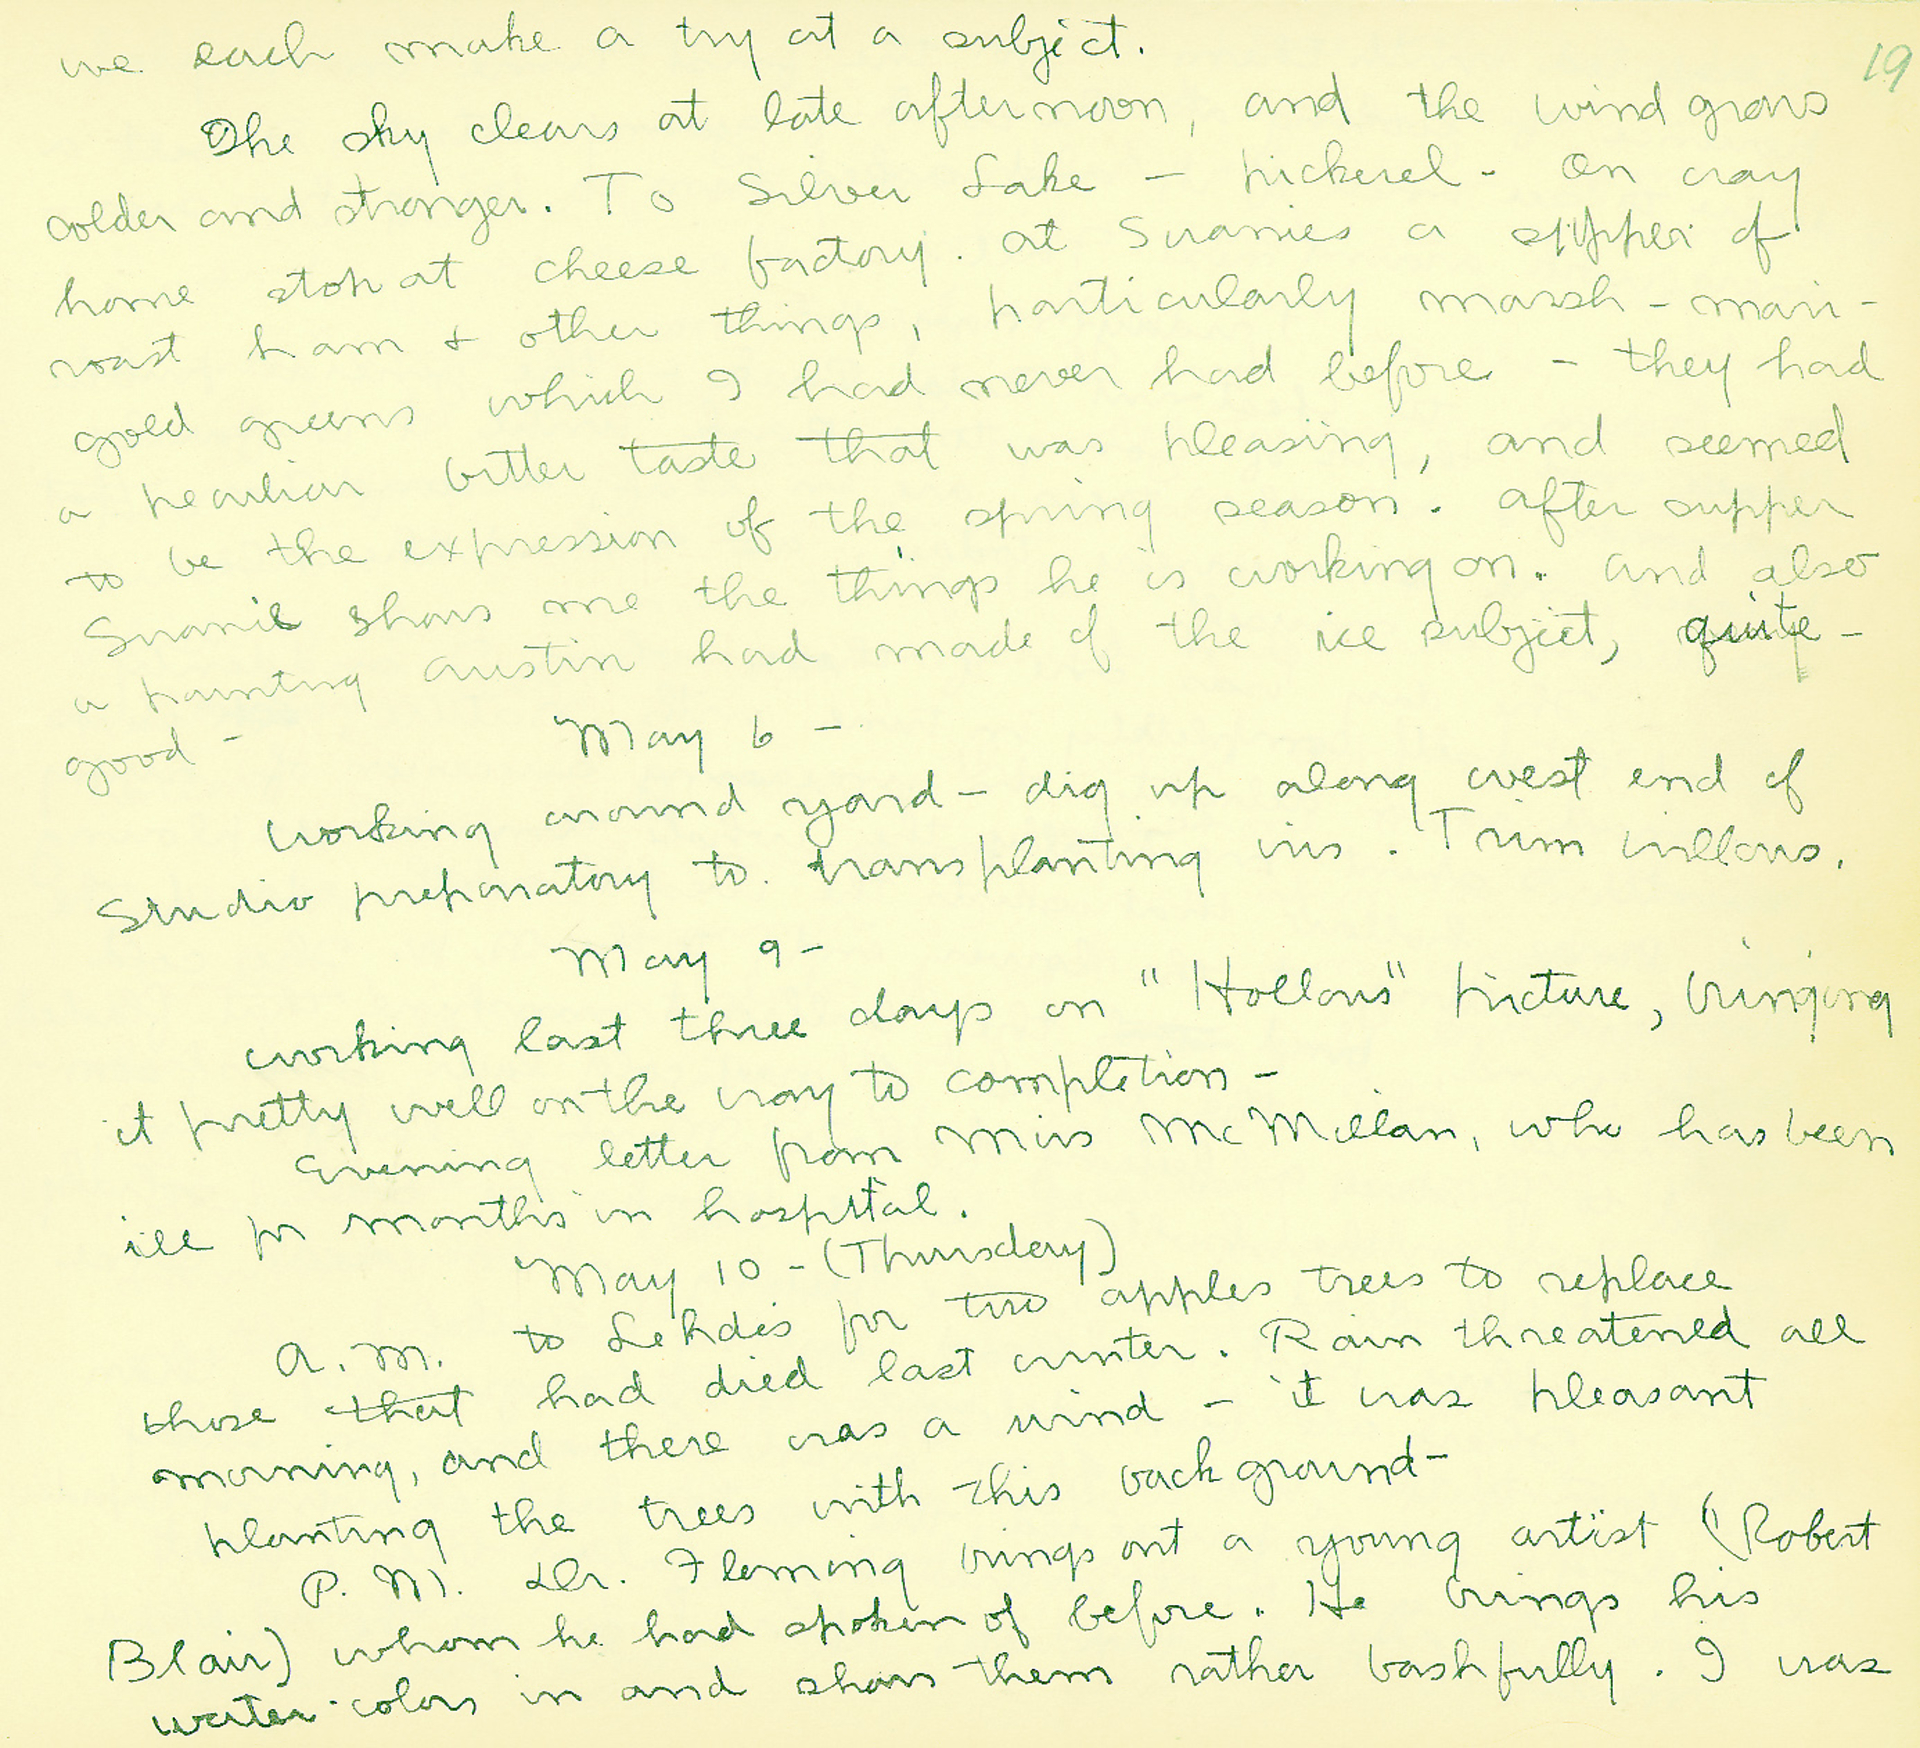 we each make a try at a subject.
19
The sky clears at late afternoon, and the wind grows
colder and stronger. To Silver Lake – pickerel - On way
home stop at cheese factory. at Suanies a supper of
roast ham & other things, particularly marsh-mari-
gold greens which I had never had before – they had
a peculiar bitter taste that was pleasing, and seemed
to be the expression of the spring season. After supper
Suanie shows me the things he is working on. And also
a painting Austin had made of the ice subject, quite –
good –
May 6 –
Working around yard – dig up along west end of
Studio preparatory to transplanting iris. Trim willows.
May 9 –
Working last three days on "Hollows" picture, bringing
it pretty well on the way to completion –
Evening letter from Miss McMillan, who has been
ill for months in hospital.
May 10 – (Thursday)
A.M. to Lehdes for two apples trees to replace
those that had died last winter. Rain threatened all
morning, and there was a wind – it was pleasant
planting the trees with this background –
P.M. Dr. Fleming brings out a young artist (Robert
Blair) whom he had spoken of before. He brings his
water-colors in and shows them rather bashfully. I was